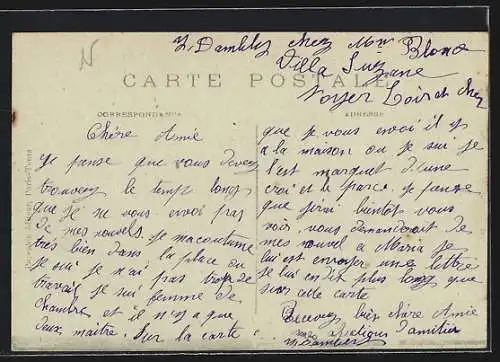 chez Mme Blanc
Villa Suzane
Noyer Loir et Cher
CARTE POSTALE
CORRESPONDANCE
ADRESSE
Chère Amie
Je panse que vous devez
trouvez le temp long
que je ne vous envoi pas
de mes nouvels. je macoutume
très bien dans la place ou
je sui je n'ai pas trop de
travail je sui femme de
chambre et il n'y a que
deux maitre. Sur la carte
que je vous envoi il y
a la maison ou je sui je
l'est marquet d'une
croi et le parc. je panse
que j'irai bientot vous
voir vous demanderait de
mes nouvel a Maria je
lui est envoyer une lettre
je lui en dit plus long que
sur cette carte
Recevez bien chère Amie
mes amitier